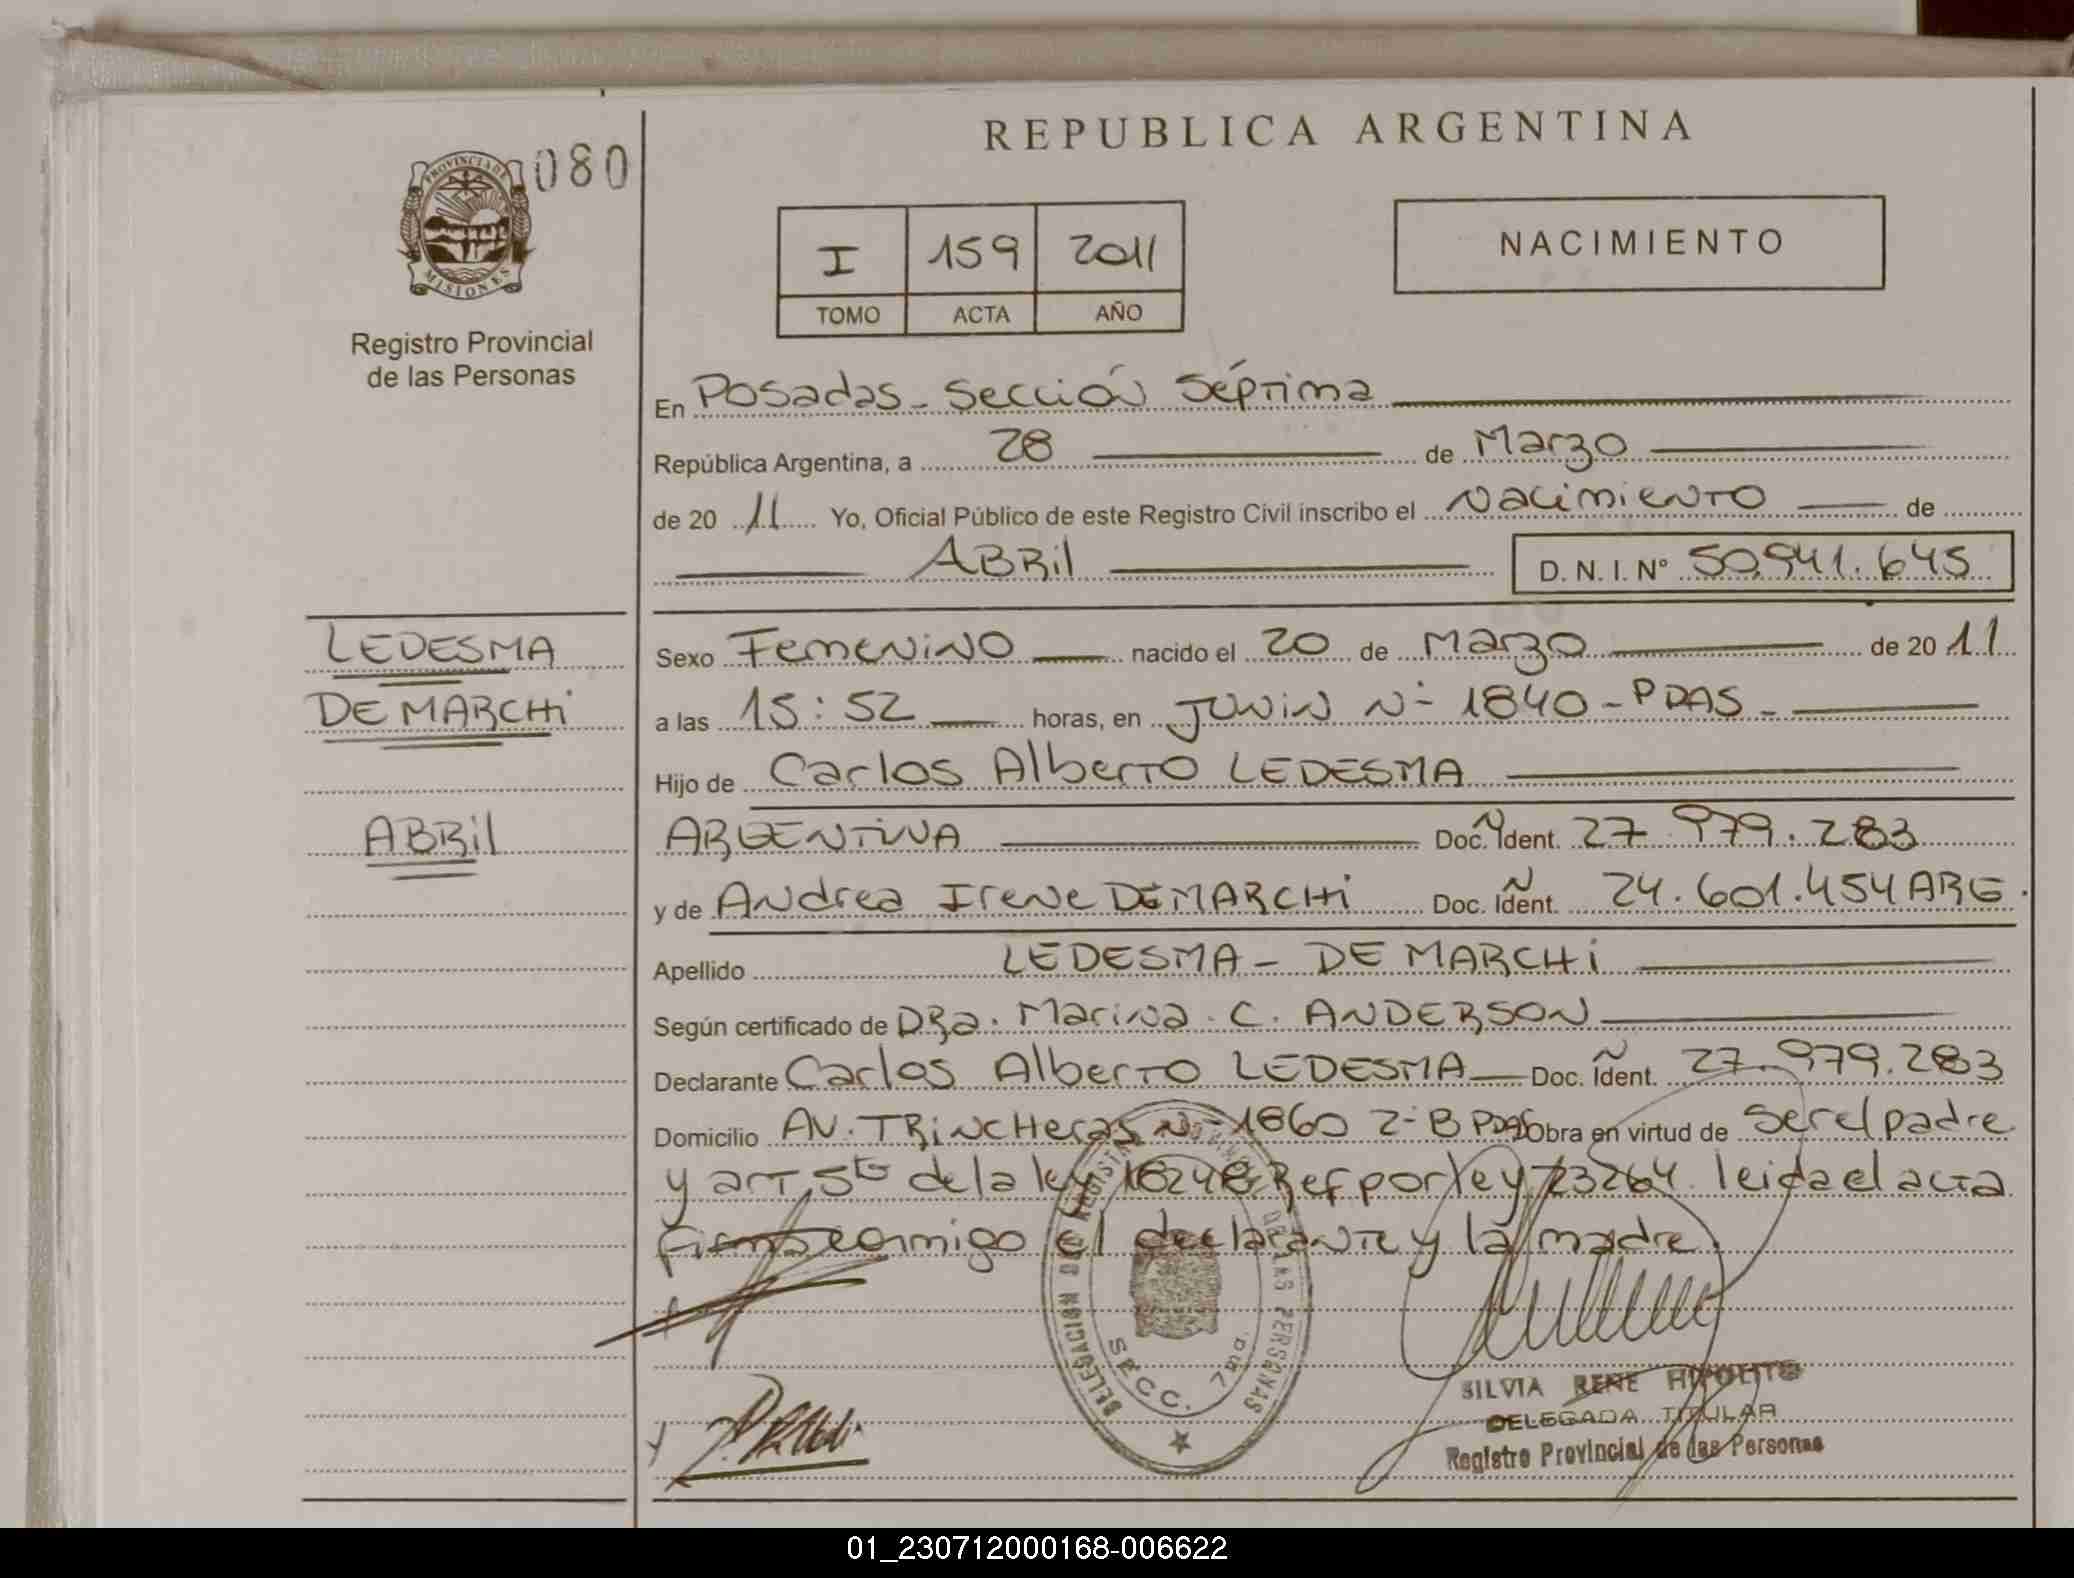 REPUBLICA ARGENTINA
PROVINCIA DE
MISIONES
080
Registro Provincial
de las Personas
I 159 2011
TOMO ACTA AÑO
NACIMIENTO
En Posadas - Sección Séptima
República Argentina, a 28 de Marzo
de 20 11 Yo, Oficial Público de este Registro Civil inscribo el Nacimiento de
ABRil D. N. I. N° 50.941.645
LEDESMA
DE MARCHi
ABRil
Sexo Femenino nacido el 20 de Marzo de 20 11
a las 15:52 horas, en JUNiN N° 1840 - PDAS -
Hijo de Carlos Alberto LEDESMA
ARGENTiNA Doc. Ident. 27.979.283
y de Andrea Irene DE MARCHi Doc. Ident. 24.601.454 ARG.
Apellido LEDESMA - DE MARCHi
Según certificado de DRa. Marina C. ANDERSON
Declarante Carlos Alberto LEDESMA Doc. Ident. 27.979.283
Domicilio AV. TRiNCHeras N° 1860 Z-B PDAS Obra en virtud de ser el padre
y art 5to de la ley 18248 Ref por ley 23264 leida el acta
firma conmigo el declarante y la madre.
DELEGACION DEL REGISTRO PROVINCIAL DE LAS PERSONAS
SECC. 7ma.
SILVIA RENE HIPOLITO
DELEGADA TITULAR
Registro Provincial de las Personas
01_230712000168-006622